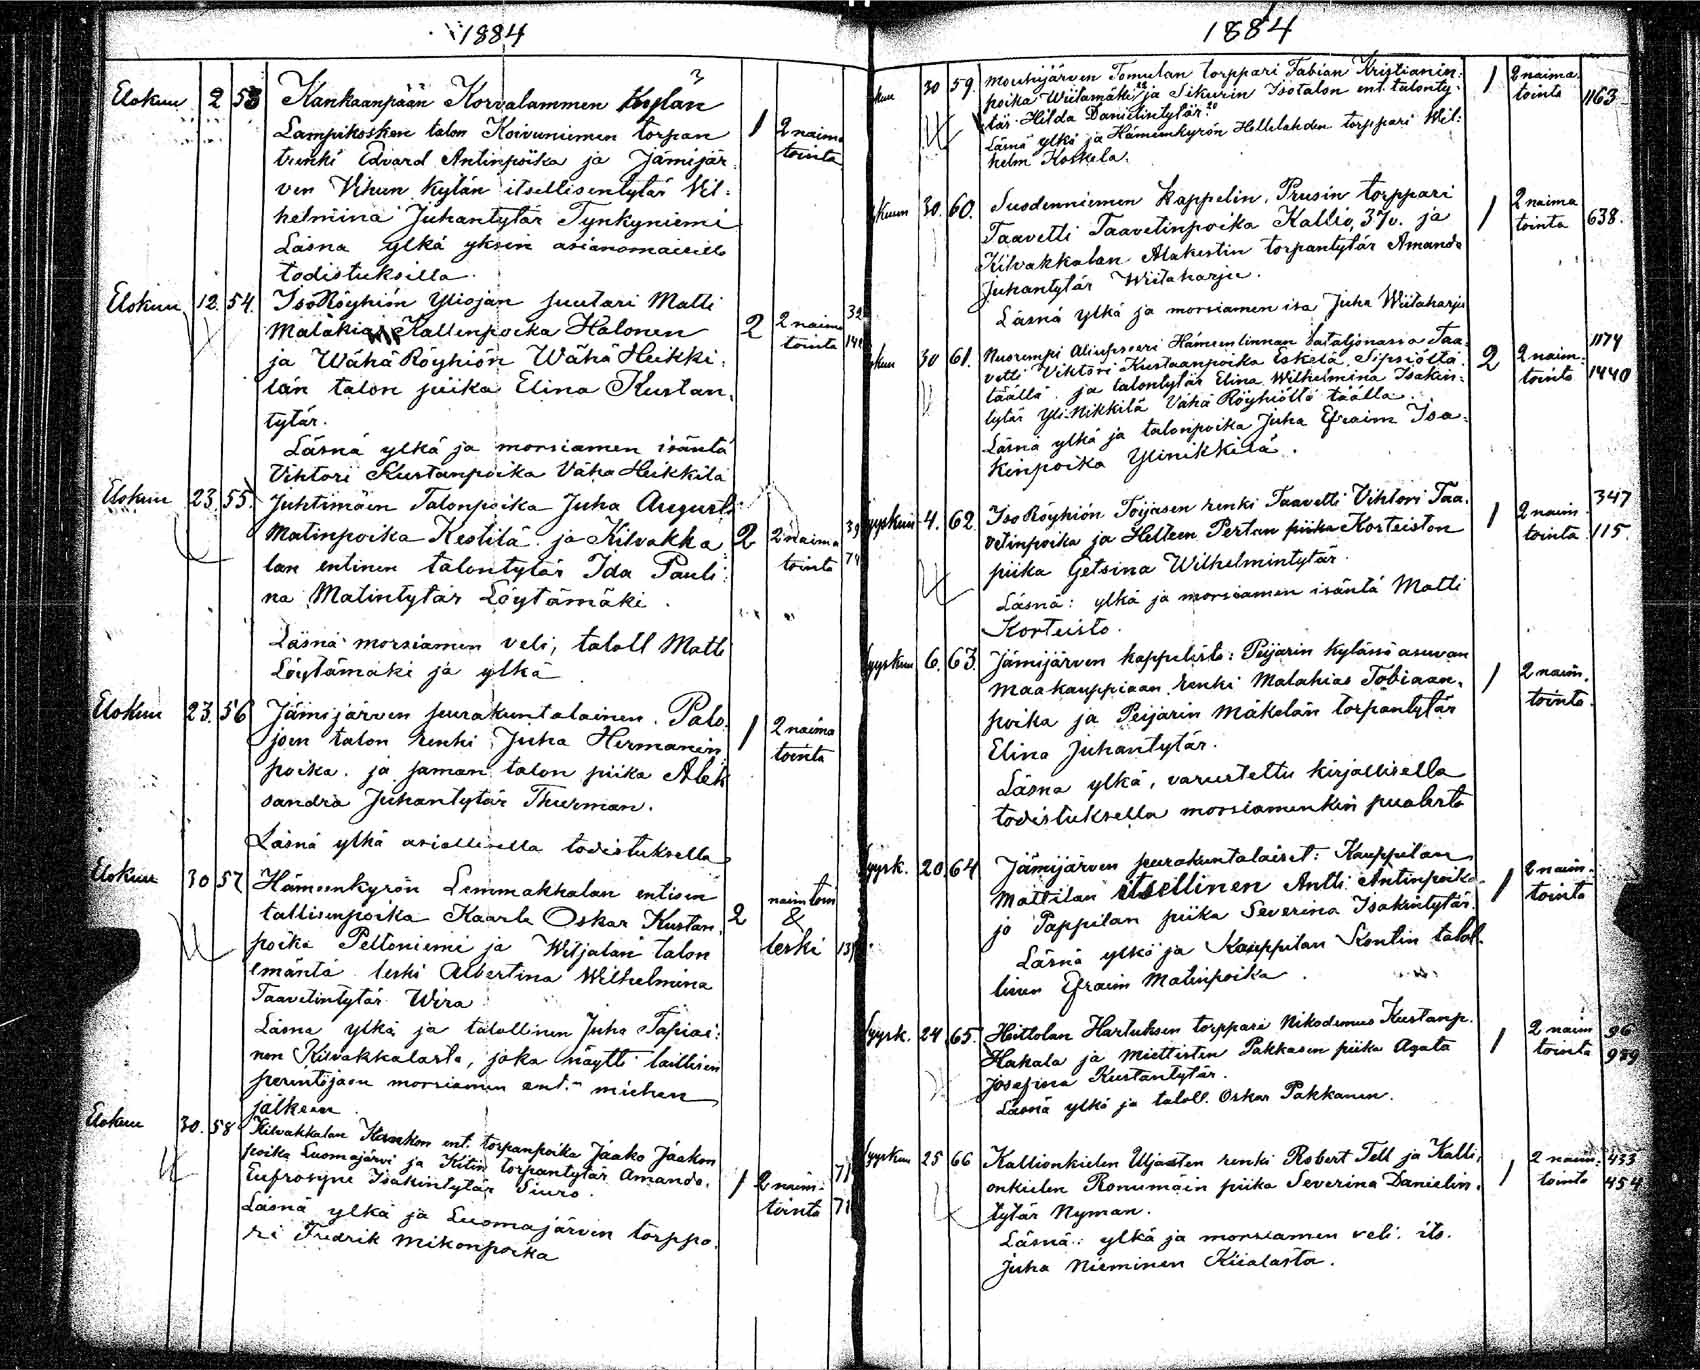 1884
Elokuu 2 53 Kankaanpään Korvalammen Kylän
Lampikosken talon Koivuniemen torpan 1 2 naima
trenki Edvard Antinpoika ja Jämijär- tointa
ven Vihun kylän itsellisentytär Vil-
helmiina Juhantytär Tynkyniemi
Läsnä ylkä yksin asianomaisilla
todistuksilla.
Elokuu 12. 54. IsoRöyhiön Yliojan suutari Matti
Malakias Kallenpoika Halonen 2 2 naima
ja WähäRöyhiön Wähä Heikki- tointa
län talon piika Elina Kustan-
tytär.
Läsnä ylkä ja morsiamen isäntä
Vihtori Kustanpoika Vähä Heikkilä
Elokuu 23. 55. Juhtimäen Talonpoika Juha August
Matinpoika Kestilä ja Kilvakka 2 2 naima
lan entinen talontytär Ida Pauli- tointa
na Matintytär Löytämäki.
Läsnä morsiamen veli, taloll Matti
Löytämäki ja ylkä
Elokuu 23. 56 Jämijärven seurakuntalainen. Palo-
joen talon renki Juha Hermanin 1 2 naima
poika. ja saman talon piika Alek tointa
sandra Juhantytär Thurman.
Läsnä ylkä asiallisella todistuksella
Elokuu 30 57 Hämeenkyrön Lemmakkalan entisen
tallisenpoika Kaarle Oskar Kustan- 2 naimtoin
poika Peltoniemi ja Wiljalan talon & leski
emäntä leski Albertina Wilhelmina
Taavetintytär Wira
Läsnä ylkä ja talollinen Juha Tapiai-
nen Kilvakkalasta, joka näytti laillisen
perintöjaon morsiamen ent. miehen
jälkeen.
Elokuu 30. 58 Kilvakkalan ent. torpanpoika Jaako Jaakon
poika Luomajärvi ja Kitin torpantytär Amanda
Eufrosyne Isakintytär Siuro. 1 2 naim-
Läsnä ylkä ja Luomajärven torppa- tointa
ri Fredrik Mikonpoika
1884
30 59. Mouhijärven Tomulan torppari Fabian Kristianin- 1 2 naima 1163
poika Wiitamäki ja Sikurin Isotalon ent. talonty- tointa
tär Hilda Danielintytär.
Läsnä ylkä ja Hämeenkyrön Hellelahden torppari Wil-
helm Koskela.
30. 60. Suodenniemen kappelin, Prusin torppari 1 2 naima 638.
Taavetti Taavetinpoika Kallio, 37v. ja tointa
Kilvakkalan Alakestin torpantytär Amanda
Juhantytär Wiitaharju.
Läsnä ylkä ja morsiamen isä Juha Wiitaharju
30 61. Nuorempi Aliupseeri Hämeenlinnan pataljonassa Taa- 2 2 naim- 1174
vetti Vihtori Kustaanpoika Eskelä Sipsiöltä tointa 1440
täällä ja talontytär Elina Wilhelmina Isakin-
tytär Yli-Nikkilä Vähä Röyhiöltä täällä.
Läsnä ylkä ja talonpoika Juha Efraim Isa-
kinpoika Ylinikkilä.
Syyskuu 4. 62. IsoRöyhiön Toijasen renki Taavetti Vihtori Taa- 1 2 naim- 347
vetinpoika ja Helteen Pertun piika Korteiston tointa 115.
piika Getsina Wilhelmintytär.
Läsnä: ylkä ja morsiamen isäntä Matti
Korteisto.
Syyskuu 6. 63. Jämijärven kappelista: Peijarin kylässä asuvan
maakauppiaan renki Malahias Tobiaan- 1 2 naim.
poika ja Peijarin Mäkelän torpantytär tointa.
Elina Juhantytär.
Läsnä ylkä, varustettu kirjallisella
todistuksella morsiamenkin puolesta
Syysk. 20 64 Jämijärven seurakuntalaiset: Kauppilan
Mattilan itsellinen Antti Antinpoika 1 2 naim-
ja Pappilan piika Severina Isakintytär. tointa
Läsnä ylkä ja Kauppilan Kontin talol-
linen Efraim Matinpoika.
Syysk. 24 65. Heittolan Hartuksen torppari Nikodemus Kustanp. 2 naim 96
Hakala ja Miettisten Pakkasen piika Agata 1 tointa 989
Josefina Kustantytär.
Läsnä ylkä ja taloll. Oskar Pakkanen.
Syyskuu 25 66 Kallionkielen Uljasten renki Robert Tell ja Kalli- 1 2 naim- 433
onkielen Ronumäin piika Severina Danielin- tointa 454
tytär Nyman.
Läsnä: ylkä ja morsiamen veli: its.
Juha Nieminen Kiialasta.